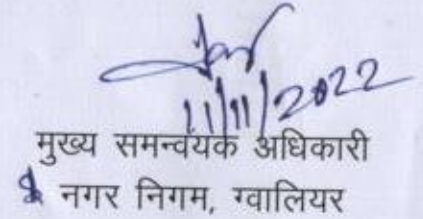 11/11/2022
मुख्य समन्वयक अधिकारी
नगर निगम, ग्वालियर